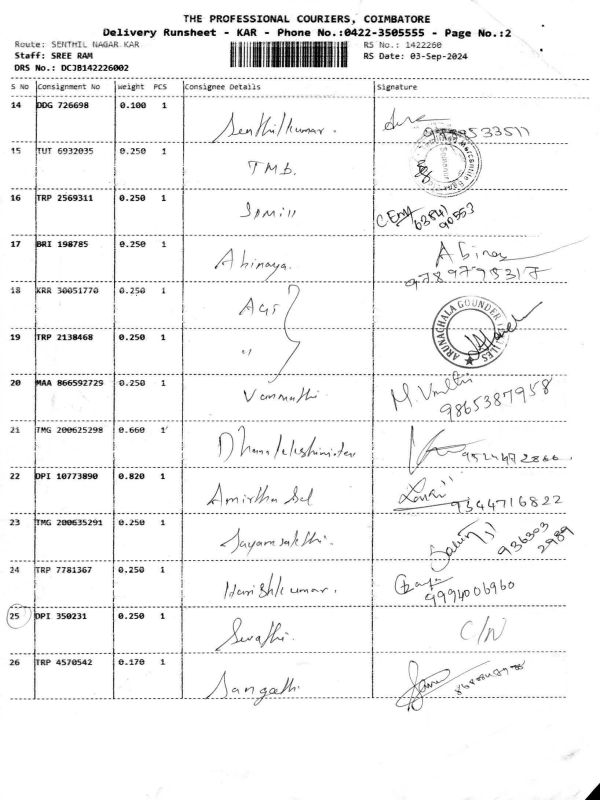 THE PROFESSIONAL COURIERS, COIMBATORE
Delivery Runsheet - KAR - Phone No.:0422-3505555 - Page No.:2
Route: SENTHIL NAGAR KAR RS No.: 1422260
Staff: SREE RAM RS Date: 03-Sep-2024
DRS No.: DCJB142226002
S No Consignment No weight PCS Consignee Details Signature
14 DDG 726698 0.100 1 Senthilkumar.
15 TUT 6932035 0.250 1 TMB.
16 TRP 2569311 0.250 1 63841
90553
17 BRI 198785 0.250 1 Abinaya. Abinay
9789795317
18 KRR 30051770 0.250 1 AGS
ARUNACHALA GOUNDER TEXTILES
19 TRP 2138468 0.250 1 "
20 MAA 866592729 0.250 1 Vanmathi M. Vanthi
9865387958
21 TMG 200625298 0.660 1 9524472866
22 DPI 10773890 0.820 1 Amirtha Sel
9344716822
23 TMG 200635291 0.250 1 936303
2989
24 TRP 7781367 0.250 1 Harishkumar.
9994006960
25 DPI 350231 0.250 1 C/N
26 TRP 4570542 0.170 1 Sangathi